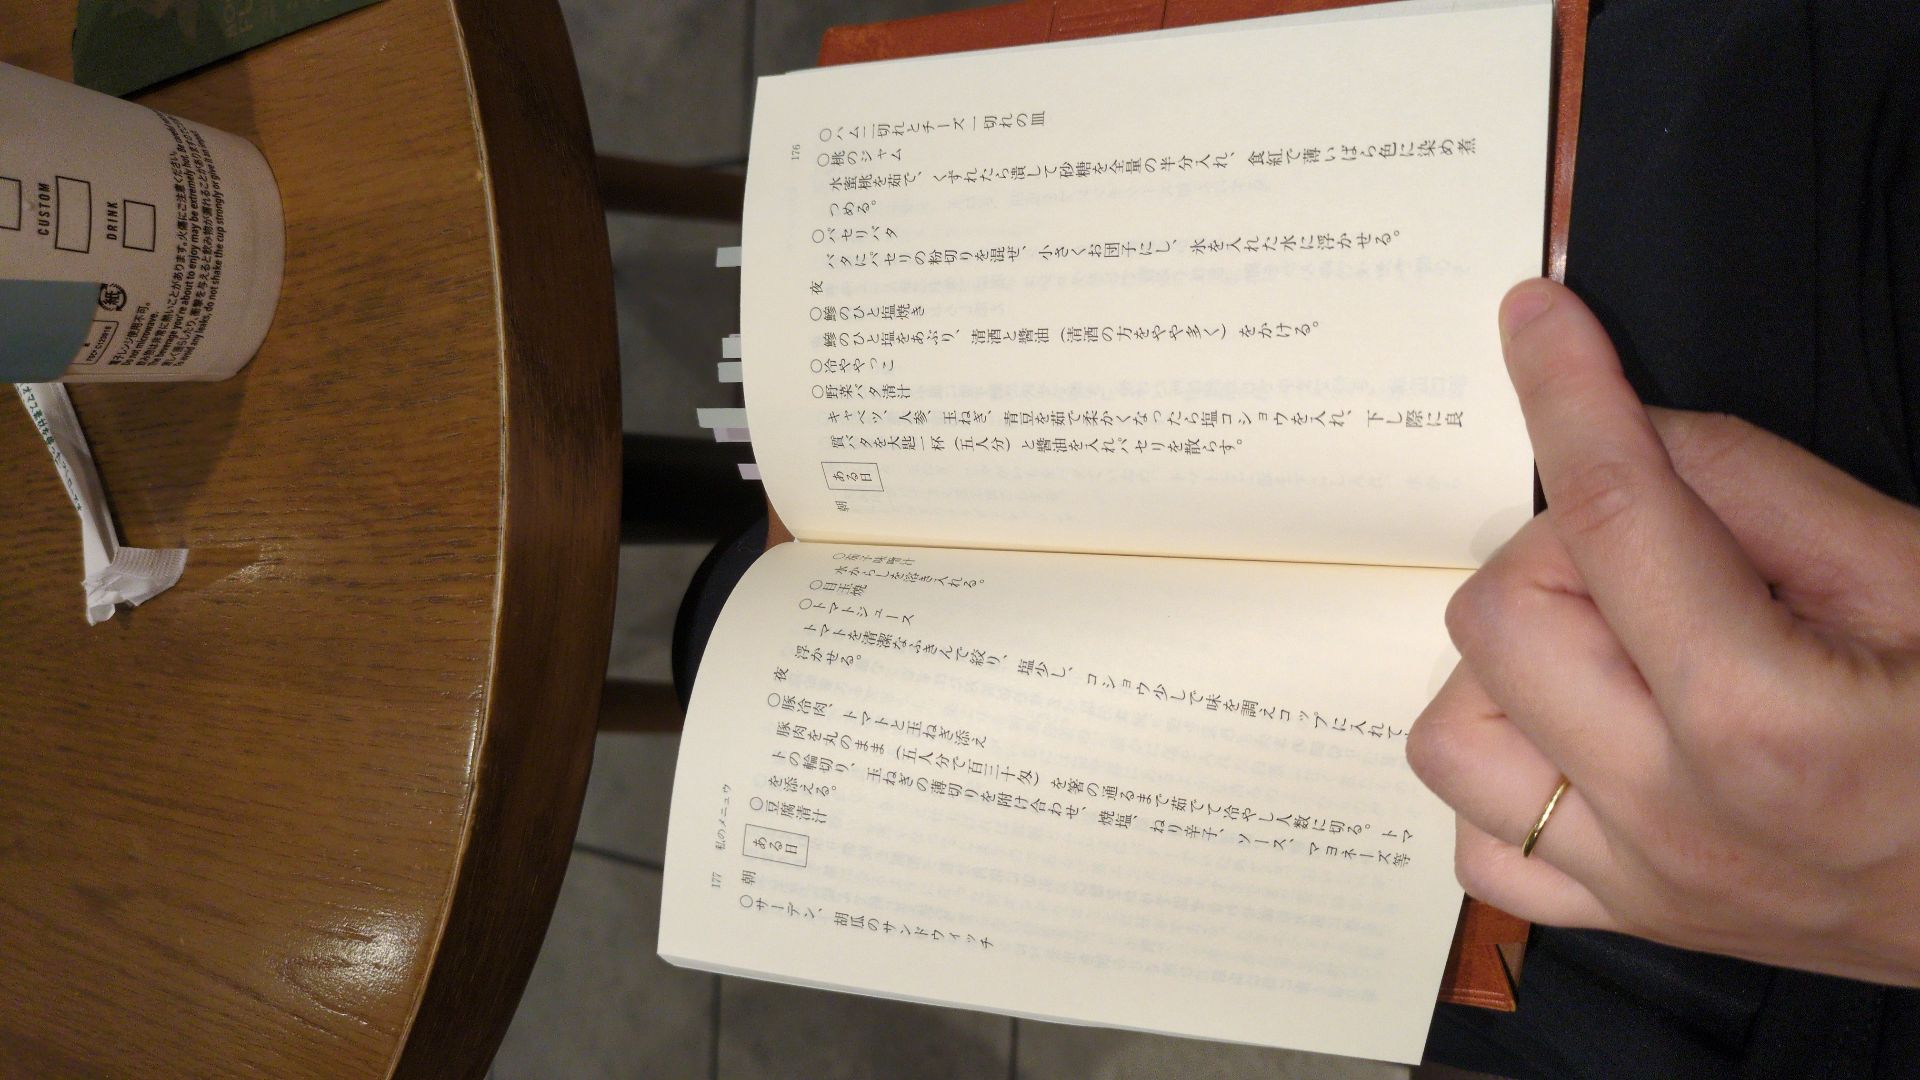 176
○ハム二切れとチーズ一切れの皿
○桃のジャム
水蜜桃を茹で、くずれたら潰して砂糖を全量の半分入れ、食紅で薄いばら色に染め煮
つめる。
○パセリバタ
バタにパセリの粉切りを混ぜ、小さくお団子にし、氷を入れた水に浮かせる。
夜
○鰺のひと塩焼き
鰺のひと塩をあぶり、清酒と醬油（清酒の方をやや多く）をかける。
○冷ややっこ
○野菜バタ清汁
キャベツ、人参、玉ねぎ、青豆を茹で柔かくなったら塩コショウを入れ、下し際に良
質バタを大匙一杯（五人分）と醬油を入れパセリを散らす。
ある日
朝
○茄子味噌汁
水からしを溶き入れる。
○目玉焼
○トマトジュース
トマトを清潔なふきんで絞り、塩少し、コショウ少しで味を調えコップに入れて、
浮かせる。
夜
○豚冷肉、トマトと玉ねぎ添え
豚肉を丸のまま（五人分で百三十匁）を箸の通るまで茹でて冷やし人数に切る。トマ
トの輪切り、玉ねぎの薄切りを附け合わせ、焼塩、ねり辛子、ソース、マヨネーズ等
を添える。
○豆腐清汁
ある日
朝
○サーデン、胡瓜のサンドウィッチ
177 私のメニュウ
CUSTOM
DRINK
紙
電子レンジ使用不可。
Do not microwave.
The beverage you're about to enjoy may be extremely hot.
to avoid any leaks, do not shake the cup strongly or give it an impact.